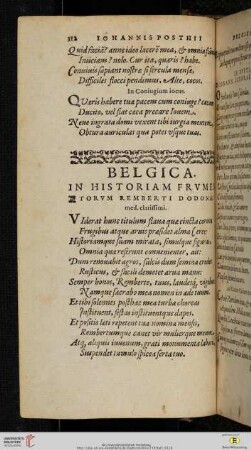 112 IOHANNIS POSTHII
Quid faciā? anne ideo lacerē mea, & omnia
Iniiciam? nolo. Cur ita, quaris? habe.
Conuiuis sapiant nostra si fercula mensa,
Difficiles flocci pendimus, Aite, cocos.
In Coniugium iocus.
QVaris habere tua pacem cum coniuge?
Ducito, vel fiat caca precare
Neue ingrata domi vexent tibi iurgia mentem,
Obtura auriculas qua potes vsque tuas.
BELGICA.
IN HISTORIAM FRVME
TORVM REMBERTI DODONÆ
med. clarissimi.
VIderat hunc
Frugibus atque aruis prasidet alma Ceres:
Historiamque suam mirata, simulque figuras,
Omnia qua referunt conuenienter, ait:
Dum renouabit agros, sulcis dum semina credet
Rusticus, & socia demetet arua manu:
Semper honos, Remberte, tuus, laudesq, vigebunt:
Namque sacrabo mea nomen in ade tuum.
Et tibi solennes posthac mea turba choreas
Instituent, festas instituentque dapes.
Et positis lati repetent tua nomina mensis,
Rembertumque canet vir mulierque
Atq, aliquis iuuenum, grati monumenta laboris,
Suspendet tumulo spicea serta tuo.